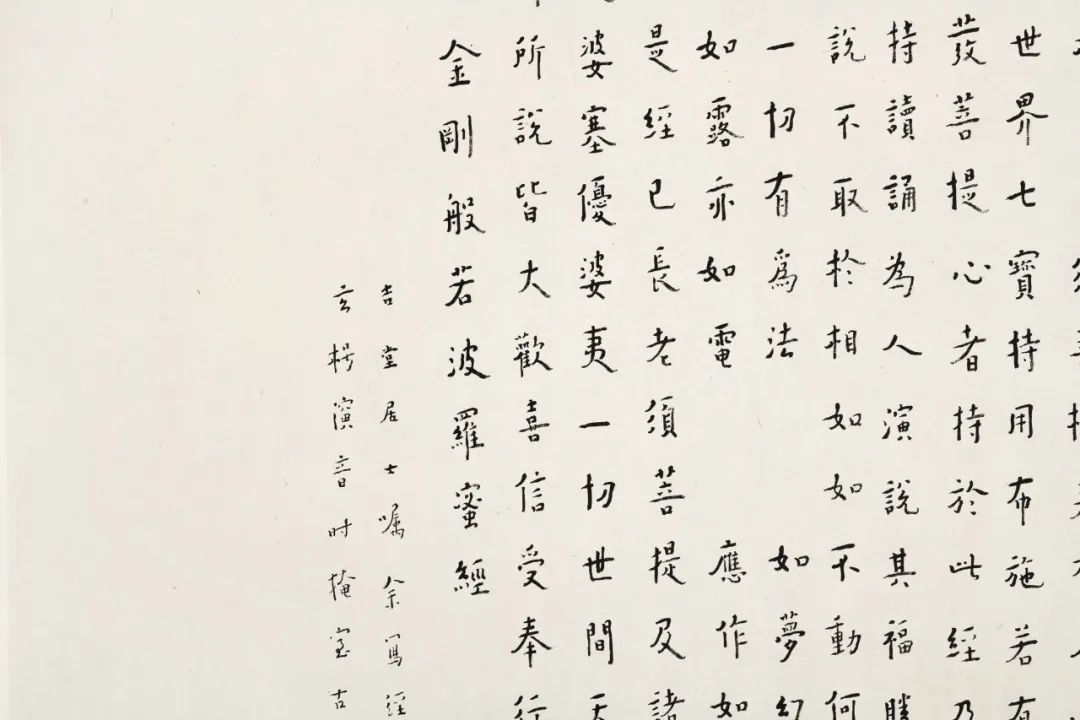 世界七寶持用布施若有
發菩提心者持於此經乃
持讀誦為人演說其福勝
說不取於相如如不動何
一切有爲法 如夢幻
如露亦如電 應作如
是經已長老須菩提及諸
婆塞優婆夷一切世間天
所說皆大歡喜信受奉行
金剛般若波羅蜜經
吉堂居士嘱余寫經
玄枵演音时掩室古